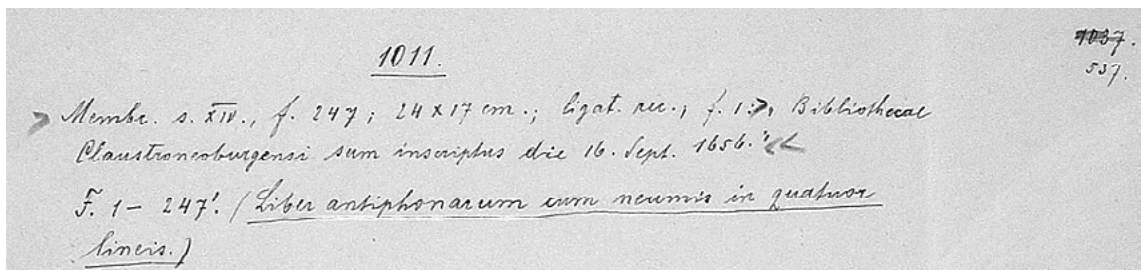 1011.
1037.
537.
Membr. s. XIV., f. 247; 24 x 17 cm.; ligat. rec.; f. 1: „Bibliothecae
Claustroneoburgensi sum inscriptus die 16. Sept. 1656.“
F. 1 - 247'. (Liber antiphonarum cum neumis in quatuor
lineis.)